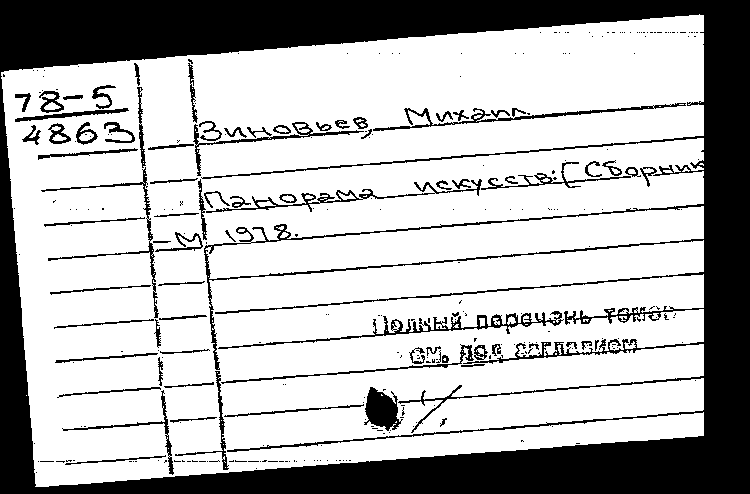 78-5
4863
Зиновьев, Михаил
Панорама искусств: [Сборник
-М, 1978.
Полный перечень томов
см. под заглавием